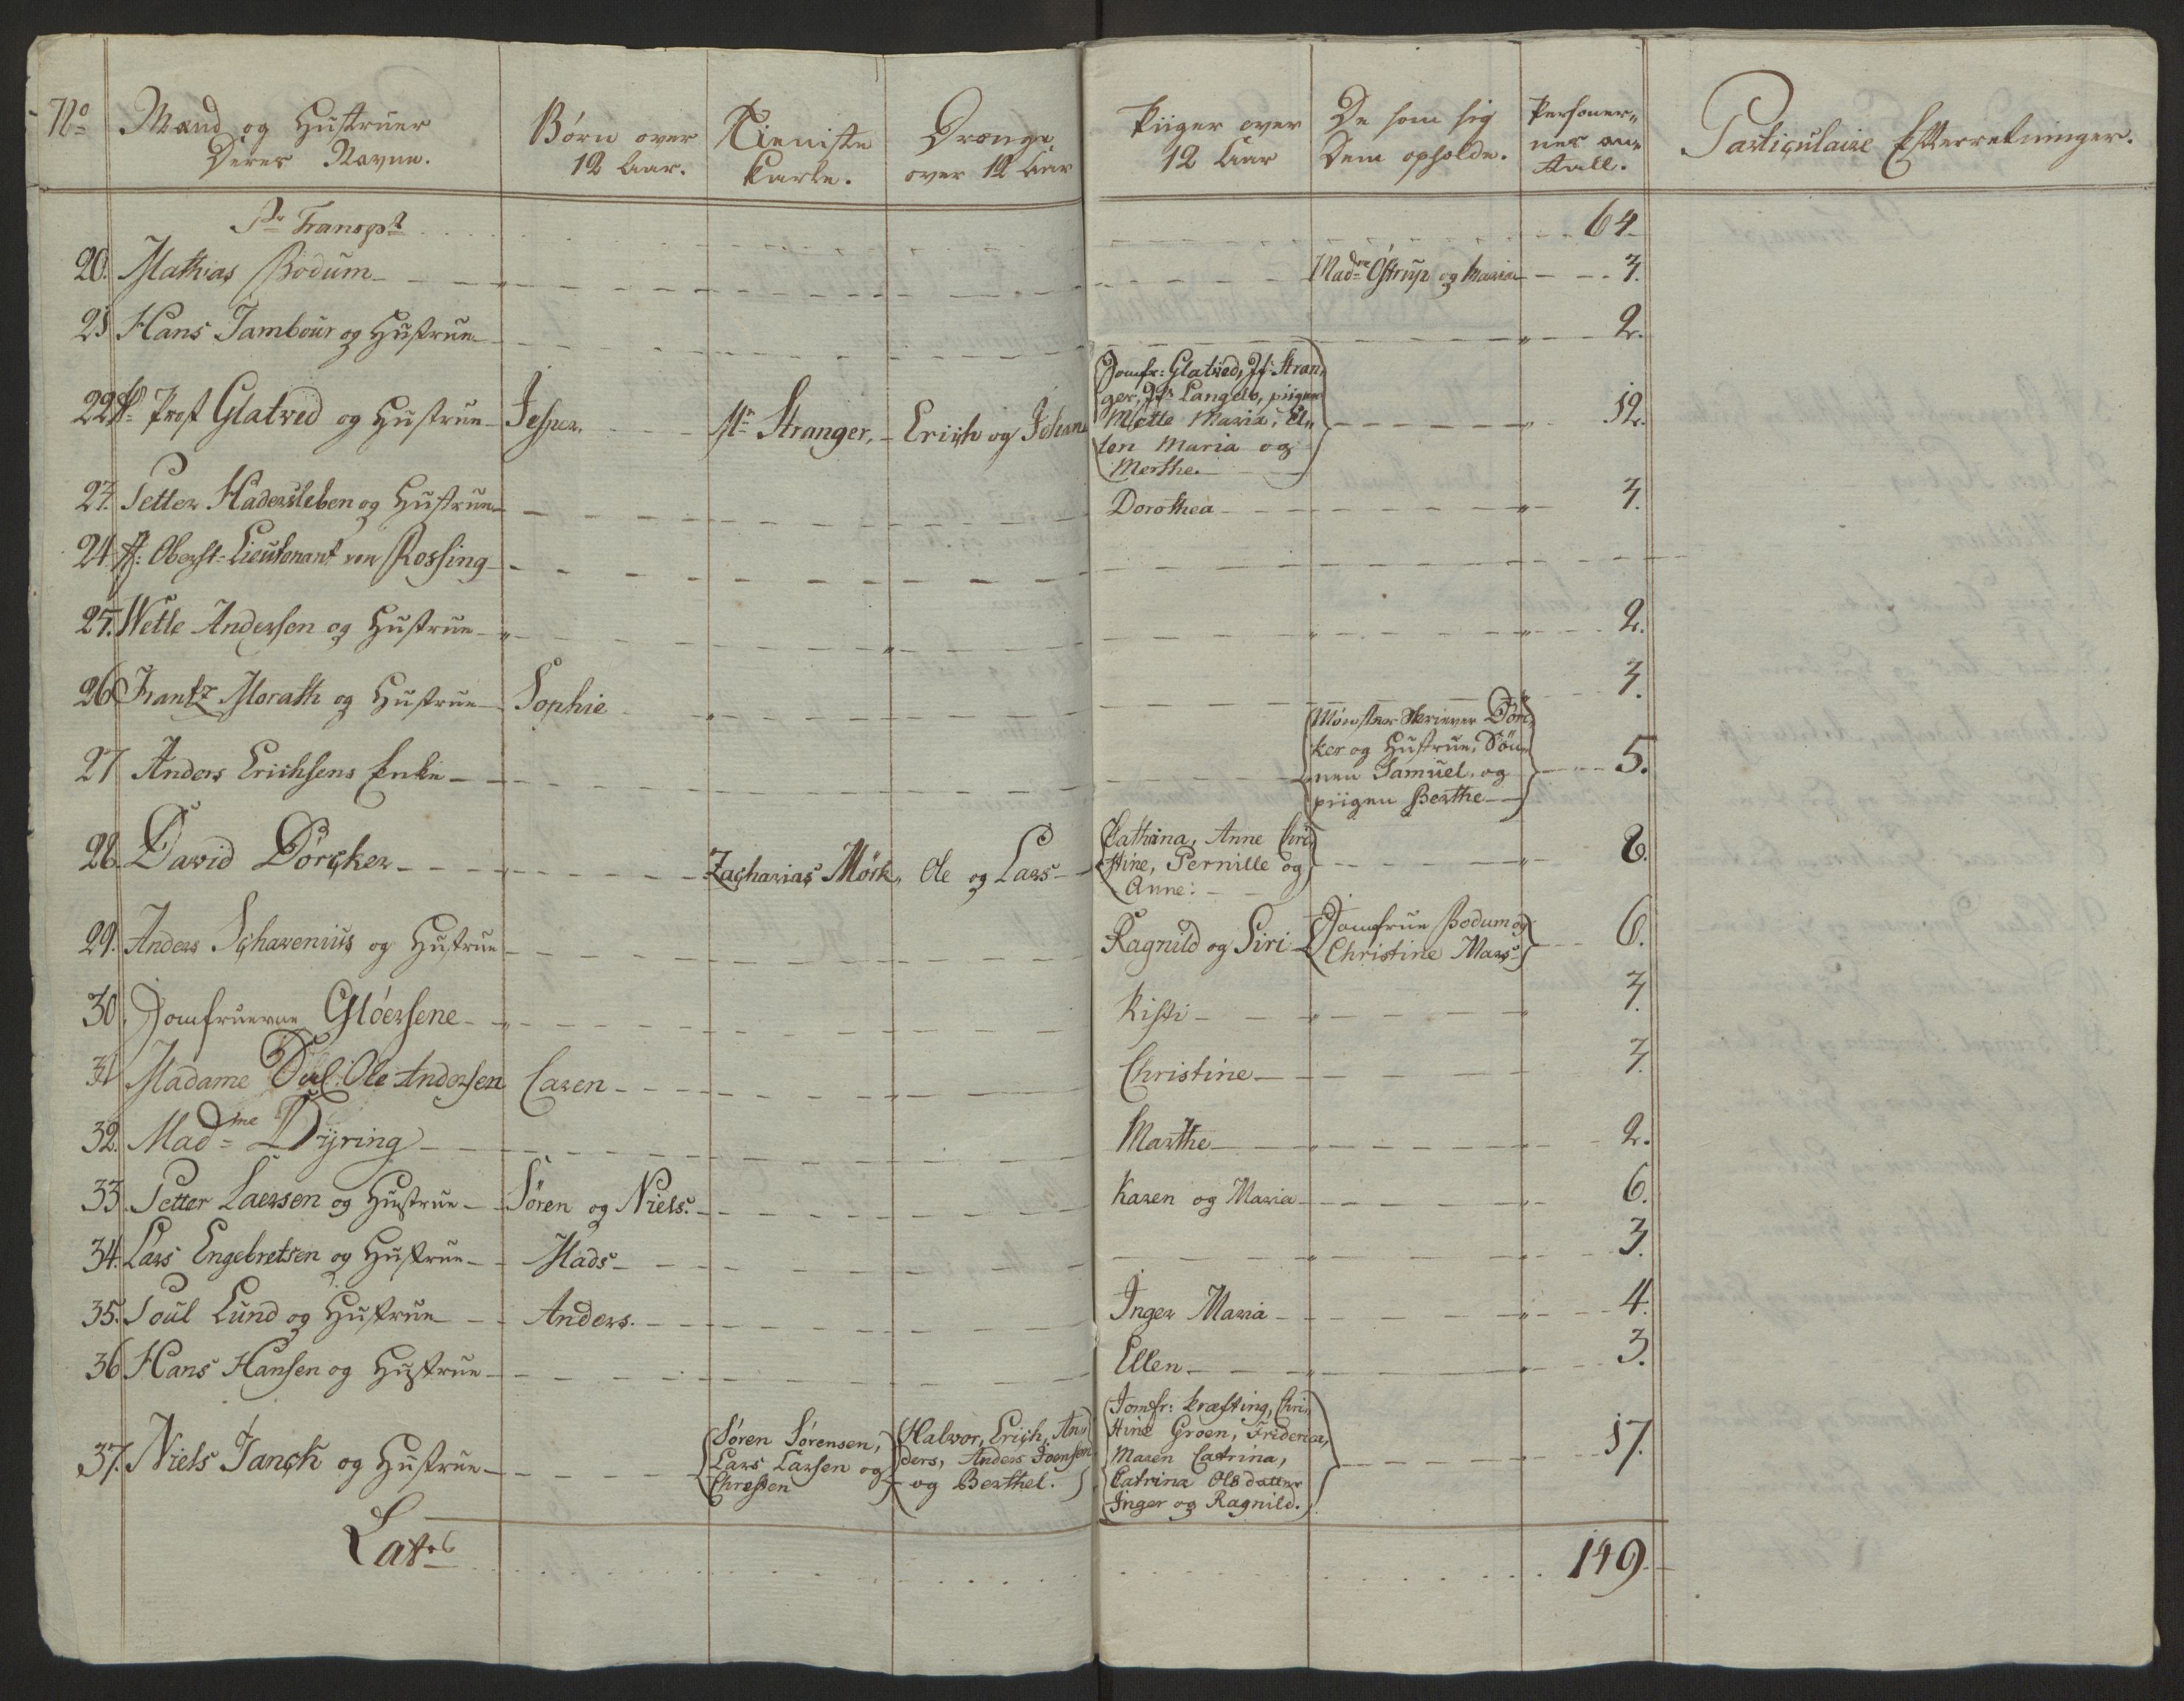 No Mand og Hustruer Deres Navne. Børn over 12 Aar. Tieniste Karle. Drænge over 12 Aar Piiger over 12 Aar De som sig Dem opholde. Personer„ nes an„ tall. Particulaire Efterretninger.
Pr Transpt 64
20. Mathias Bodum Madme Østrup og Maria 3.
21 Hans Tambour og Hustrue 2.
22 Hr Prost Glatved og Hustrue Jesper. Mr Stranger, Erich og Johan Jomfr: Glatved, Jfr Stran„ ger, Jfr Langelb, piigen Mette Maria, El„ len Maria og Merthe. 12.
23. Petter Hadersleben og Hustrue Dorothea 3.
24 Hr: Oberst-Lieutenant von Rossing
25. Wetle Andersen og Hustrue 2.
26 Frantz Morath og Hustrue Sophie 3.
27 Anders Erichsens Enke Mønster Skriever Dör„ ker og Hustrue, Søn„ nen Samuel, og piigen Berthe 5.
28. David Dörcker Zacharias Mörk, Ole og Lars Cathrina, Anne Chri„ stine, Pernille og Anne: 8.
29. Anders Scharenius og Hustrue Ragnild og Siri Jomfrue Bodum og Christine Mars 6.
30. Jomfruerne Glöersene Kisti 3.
31 Madame Sal: Ole Andersen Caren Christine 3.
32. Madme Dyring Marthe 2.
33. Petter Laersen og Hustrue Sören og Niels. Karen og Maria 6.
34. Lars Engebretsen og Hustrue Mads 3.
35. Poul Lund og Hustrue Anders. Inger Maria 4.
36 Hans Hansen og Hustrue Ellen 3.
37. Niels Janck og Hustrue Søren Sørensen, Lars Larsen og Christen Halvor, Erich, An„ ders, Anders Joensen og Berthel. Jomfr: Kræfting, Chri„ stine Groen, Friderica, Maren Catrina, Catrina Olsdatter Inger og Ragnild. 17.
Lats 149